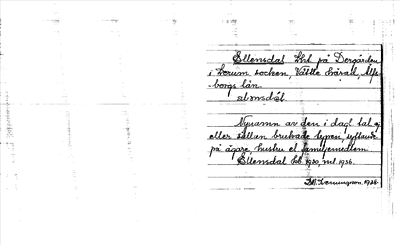 Ellensdal Lht på Dergården
i Lerum socken, Vättle härad, Älfs-
borgs län.

Nynamn av den i dagl. tal ej
eller sällan brukade typen, syftande
på ägare, hustru el. familjemedlem.
Ellensdal 1930, 1936.